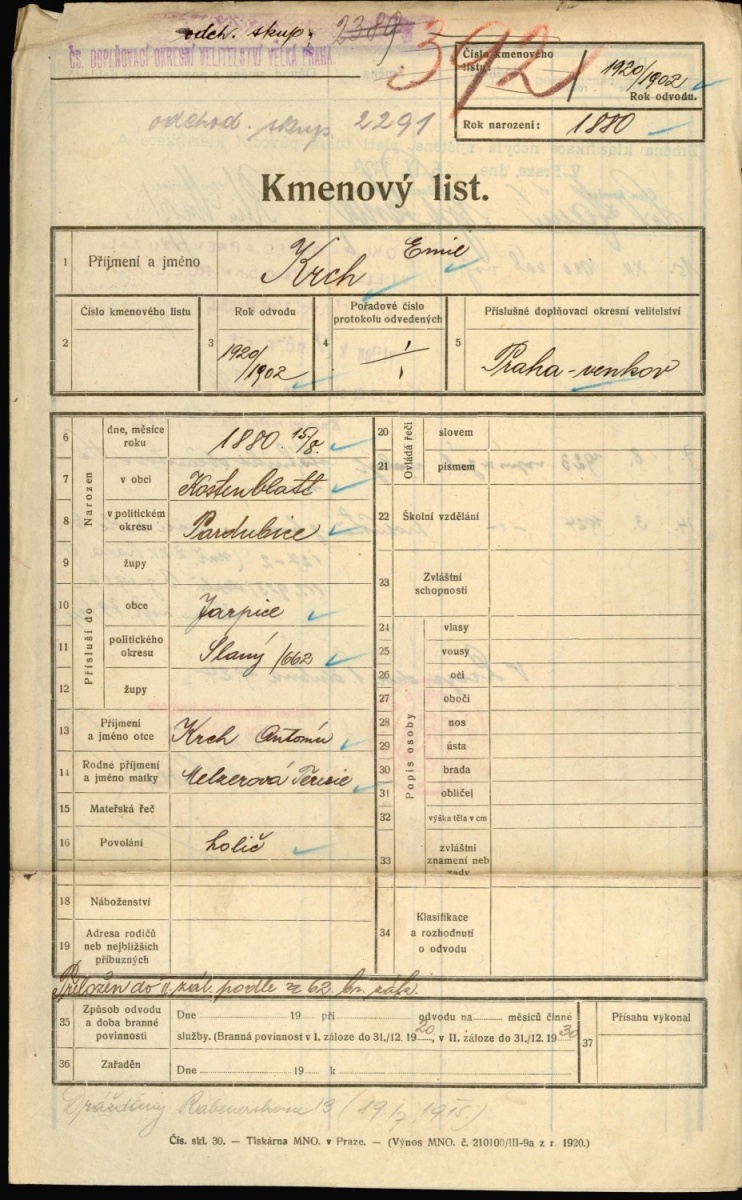 odch. skup. 2389
ČS. DOPLŇOVACÍ OKRESNÍ VELITELSTVÍ VELKÁ PRAHA.
392
Číslo kmenového listu:
1920/1902
Rok odvodu.
Rok narození: 1880
odchod. skup. 2291
Kmenový list.
1 Příjmení a jméno Krch Emil
2 Číslo kmenového listu
3 Rok odvodu 1920/1902
4 Pořadové číslo protokolu odvedených 1/1
5 Příslušné doplňovací okresní velitelství Praha-venkov
Narozen
6 dne, měsíce roku 1880 15/8.
7 v obci Kostenblatt
8 v politickém okresu Pardubice
9 župy
Přísluší do
10 obce Jarpice
11 politického okresu Slaný /662
12 župy
13 Příjmení a jméno otce Krch Antonín
14 Rodné příjmení a jméno matky Melzerová Terezie
15 Mateřská řeč
16 Povolání holič
18 Náboženství
19 Adresa rodičů neb nejbližších příbuzných
Ovládá řeči
20 slovem
21 písmem
22 Školní vzdělání
23 Zvláštní schopnosti
Popis osoby
24 vlasy
25 vousy
26 oči
27 obočí
28 nos
29 ústa
30 brada
31 obličej
32 výška těla v cm
33 zvláštní znamení neb vady
34 Klasifikace a rozhodnutí o odvodu
Přeložen do II. zál. podle § 62. br. zák.
35 Způsob odvodu a doba branné povinnosti
Dne 19 při odvodu na měsíců činné
služby. (Branná povinnost v I. záloze do 31./12. 1920, v II. záloze do 31./12. 1930
36 Zařaděn Dne 19 k
37 Přísahu vykonal
Drážďany 13 (19/7 1915)
Čís. skl. 30. — Tiskárna MNO. v Praze. — (Výnos MNO. č. 210100/III-9a z r. 1920.)